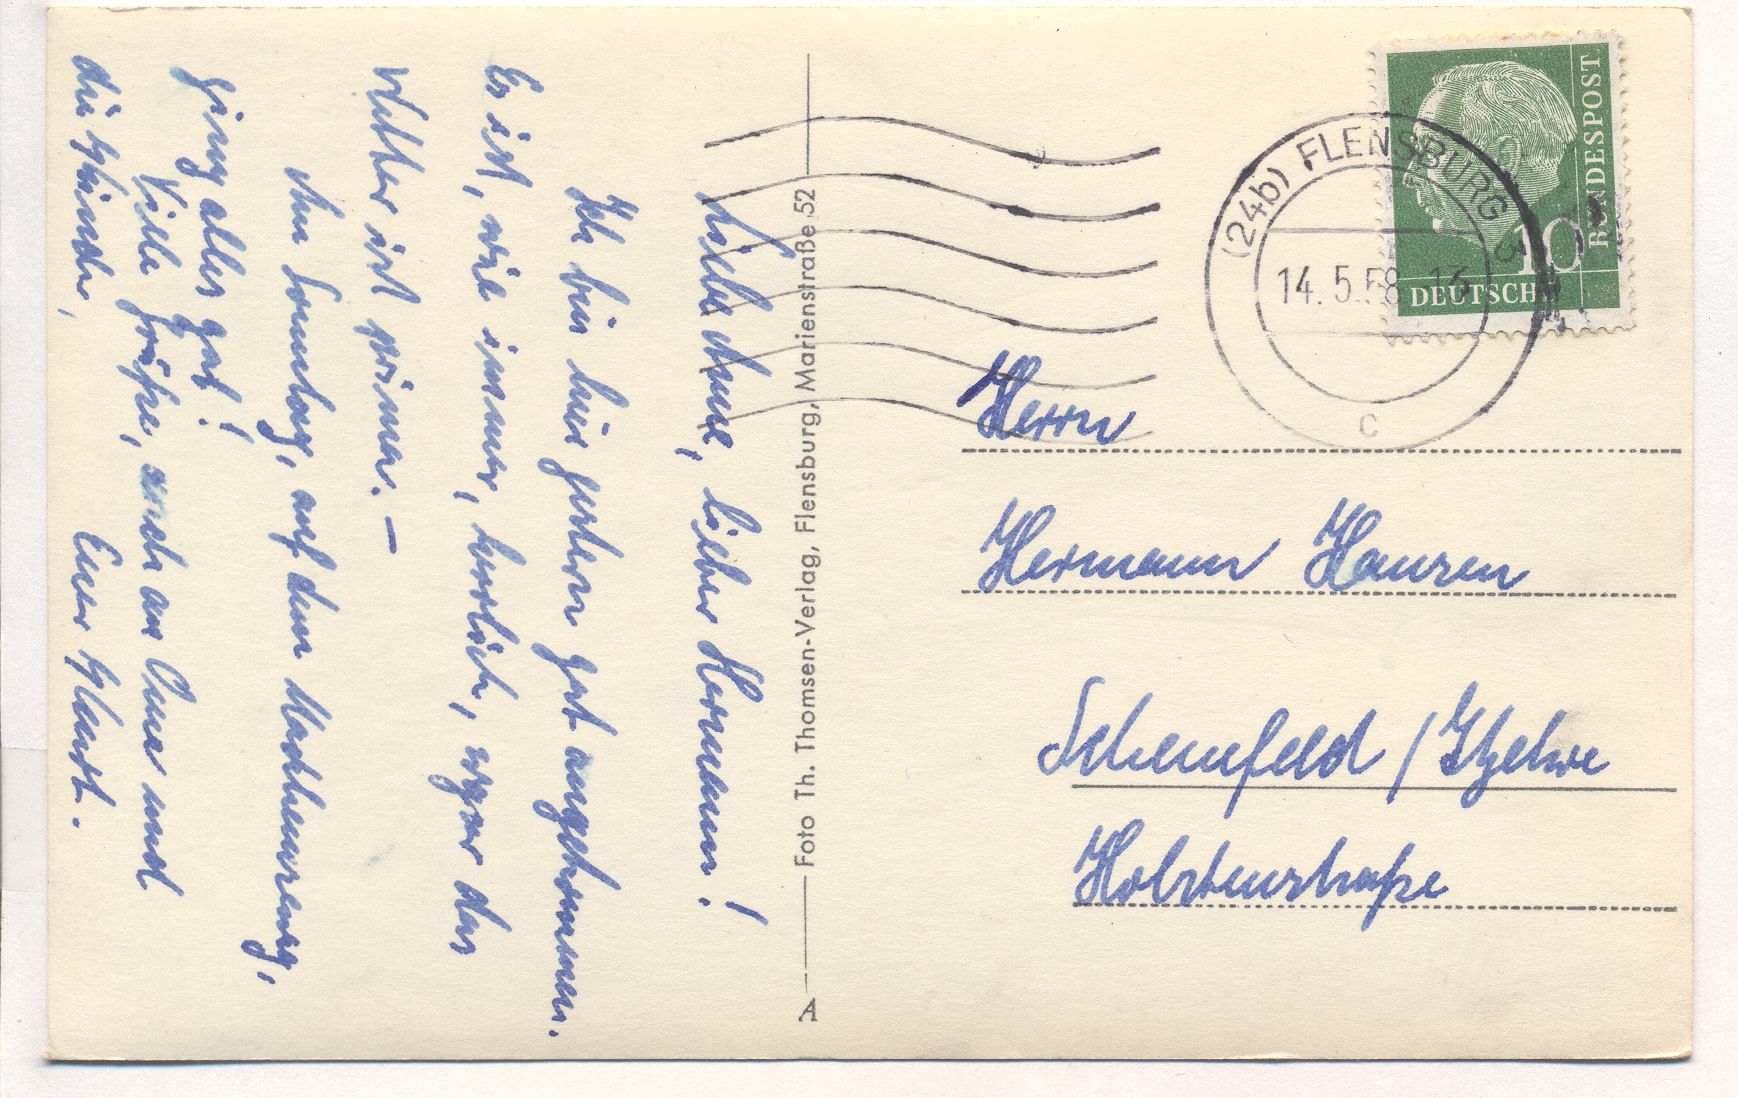 Liebe Anne, lieber Hermann!
Ich bin hier gestern gut angekommen.
Es ist, wie immer, herrlich, sogar das
Wetter ist prima. –
Am Sonntag, auf dem
ging alles gut!
Viele Grüße, auch an Oma und
die
Euer
Foto Th. Thomsen-Verlag, Flensburg, Marienstraße 52
A
(24b) FLENSBURG 3
14.5.58-13
c
DEUTSCHE
BUNDESPOST
10
Herrn
Hermann Hansen
Schenefeld / Itzehoe
Holstenstraße